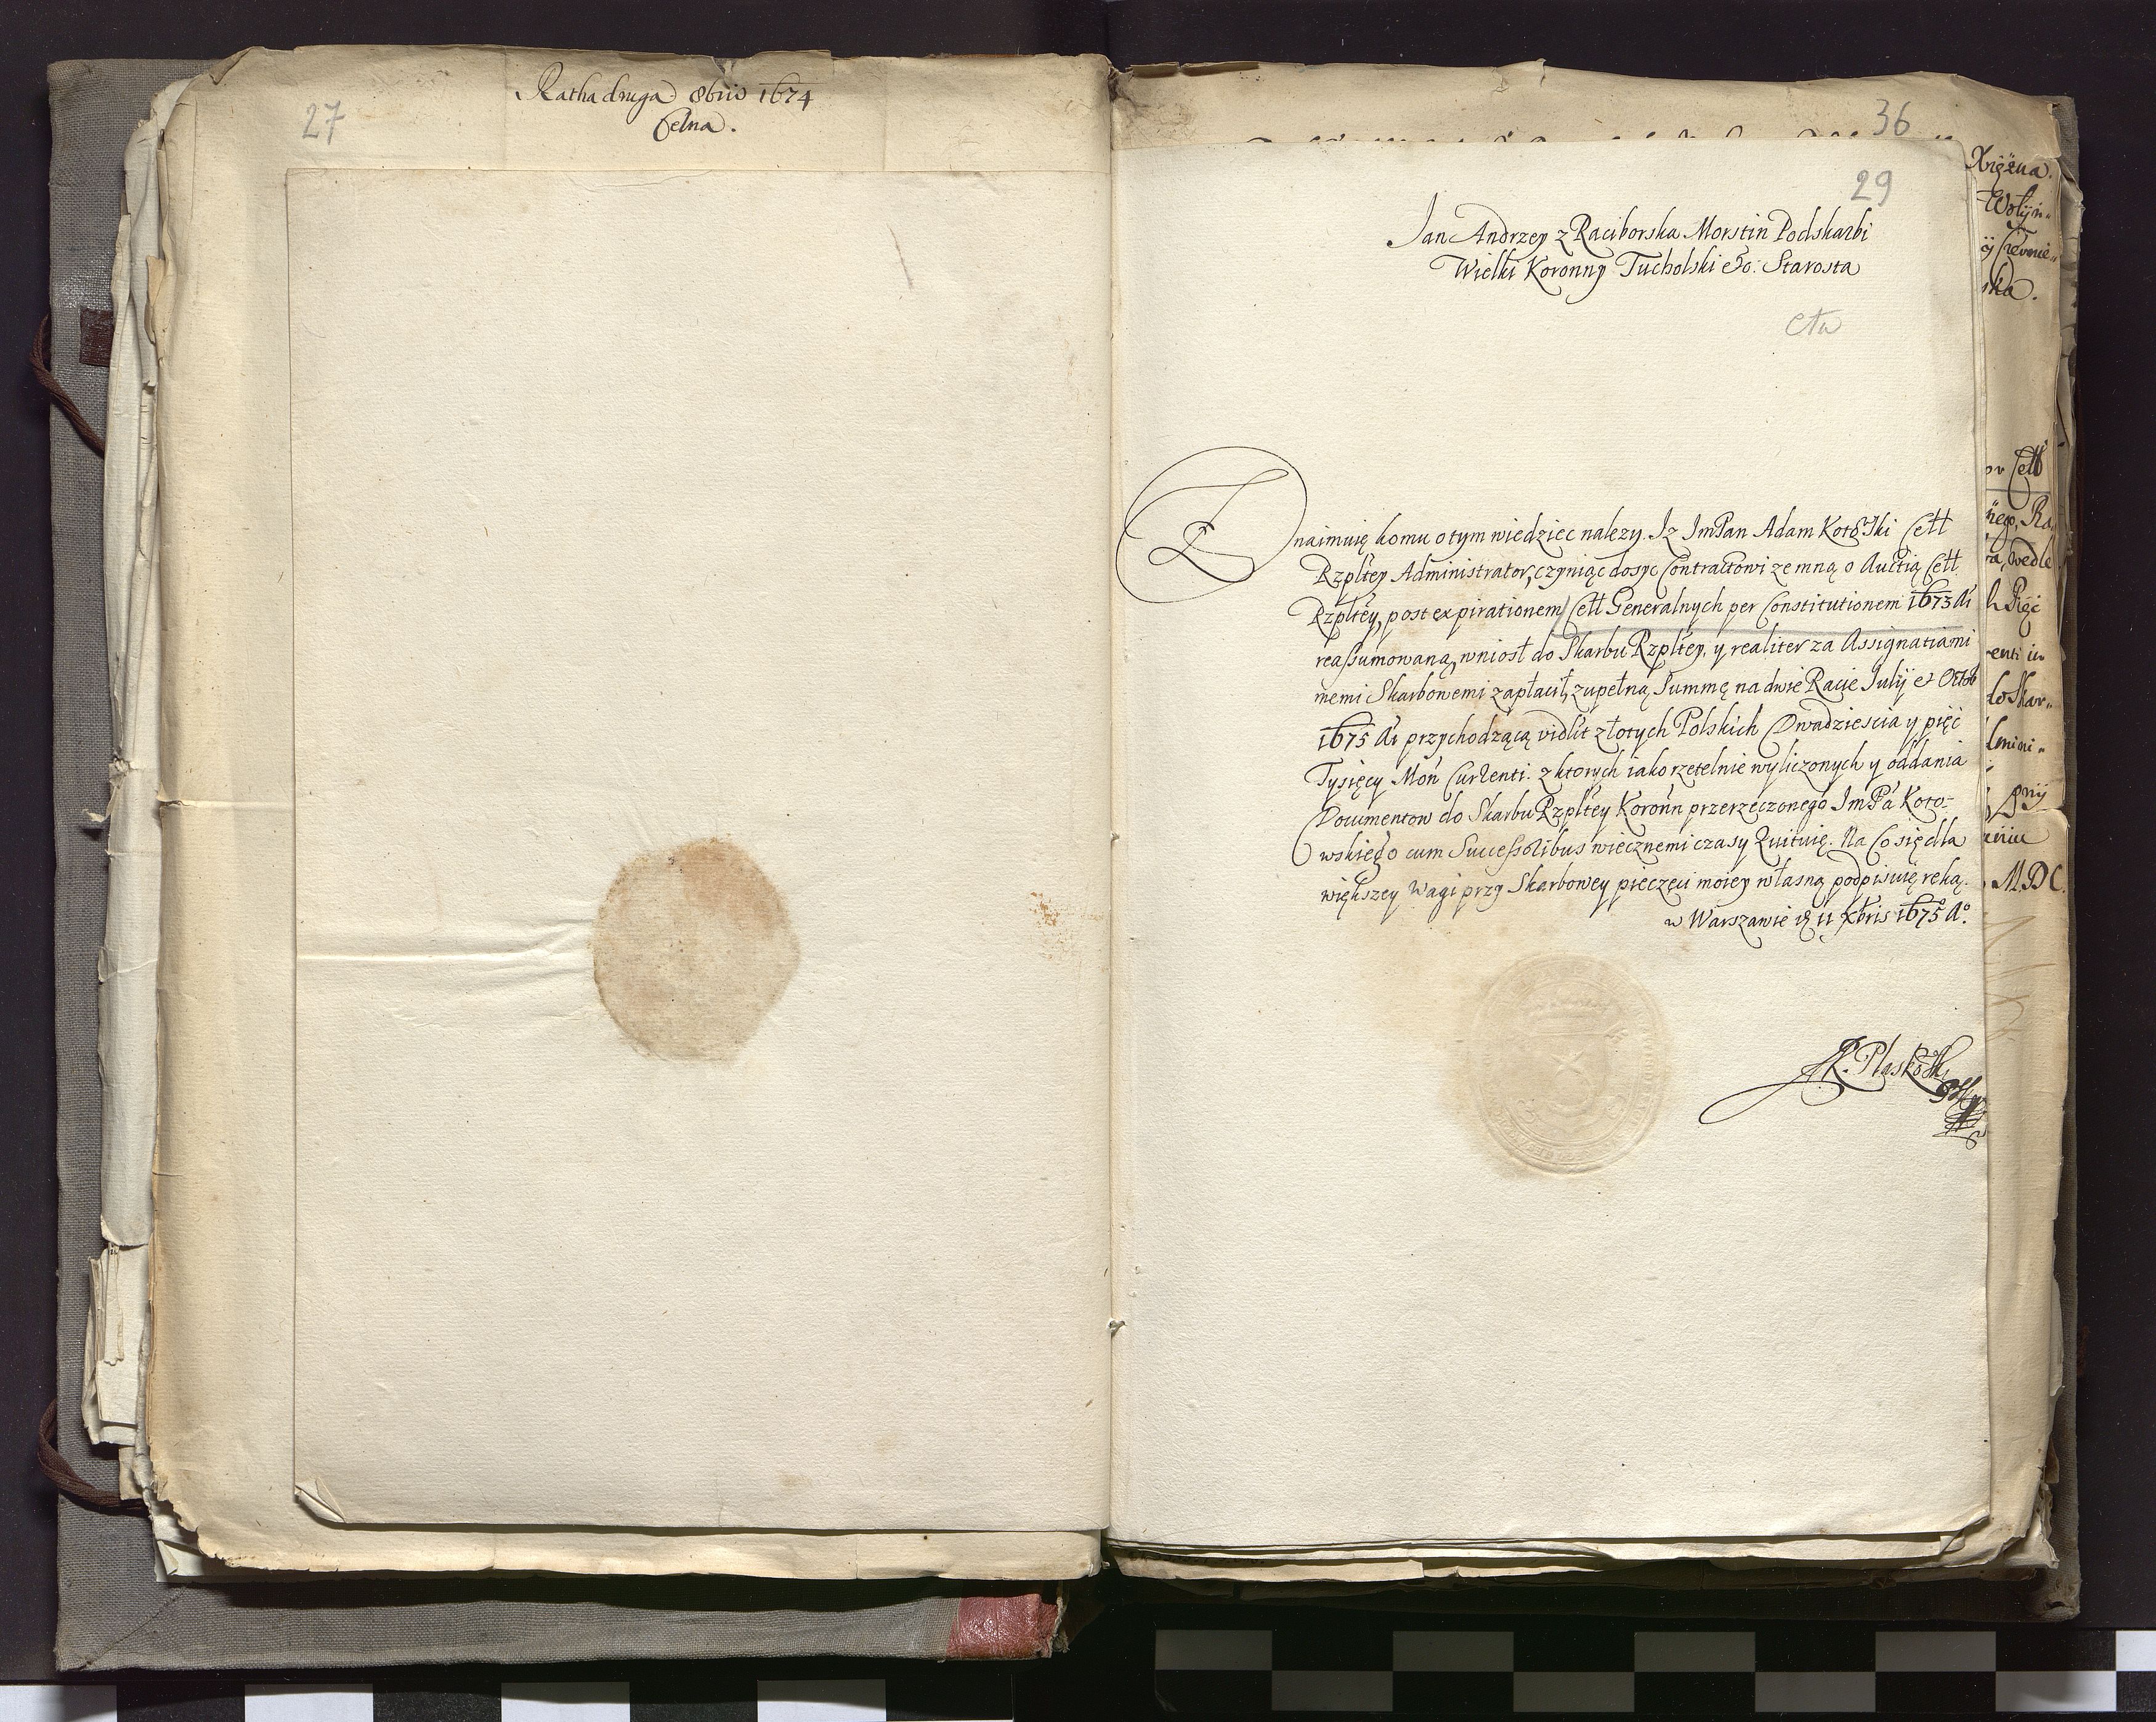 Ratha druga 8bris 1674
Celna.
27
36
29
Jan Andrzey z Raciborska Morstin Podskarbi
Wielki Koronny Tucholski &c: Starosta
Cła
Znaimuię komu o tym wiedziec nalezy. Iz ImPan Adam Kotowski Cełł
Rzpltey Administrator, czyniąc dosyc Contractowi ze mną o Auctią Cełł
Rzpltey, post expirationem Cełł Generalnych per Constitutionem 1673 Ai
reassumowaną, wniosł do Skarbu Rzpltey, y realiter za Assignatiami
memi Skarbowemi zapłacił, zupełną Summę na dwie Racie Julij et Octob
1675 Ai przychodzącą vidlit złotych Polskich Dwadziescia y pięć
Tysięcy Mon Currenti. z ktorych iako rzetelnie wyliczonych y oddania
Documentow do Skarbu Rzpltey Koronn przerzeczonego ImPa Koto-
wskiego cum Successoribus wiecznemi czasy Quituię. Na Co się dla
większey Wagi przy Skarbowey pieczęci moiey własną podpisuię ręką.
w Warszawie d 11 Xbris 1675 Ao.
Xiężna.
Wołyń-
ski.
Cełł
nego, Ra
ra, wedle
h Pięć
renti in
do Skar-
dmini-
MDC.